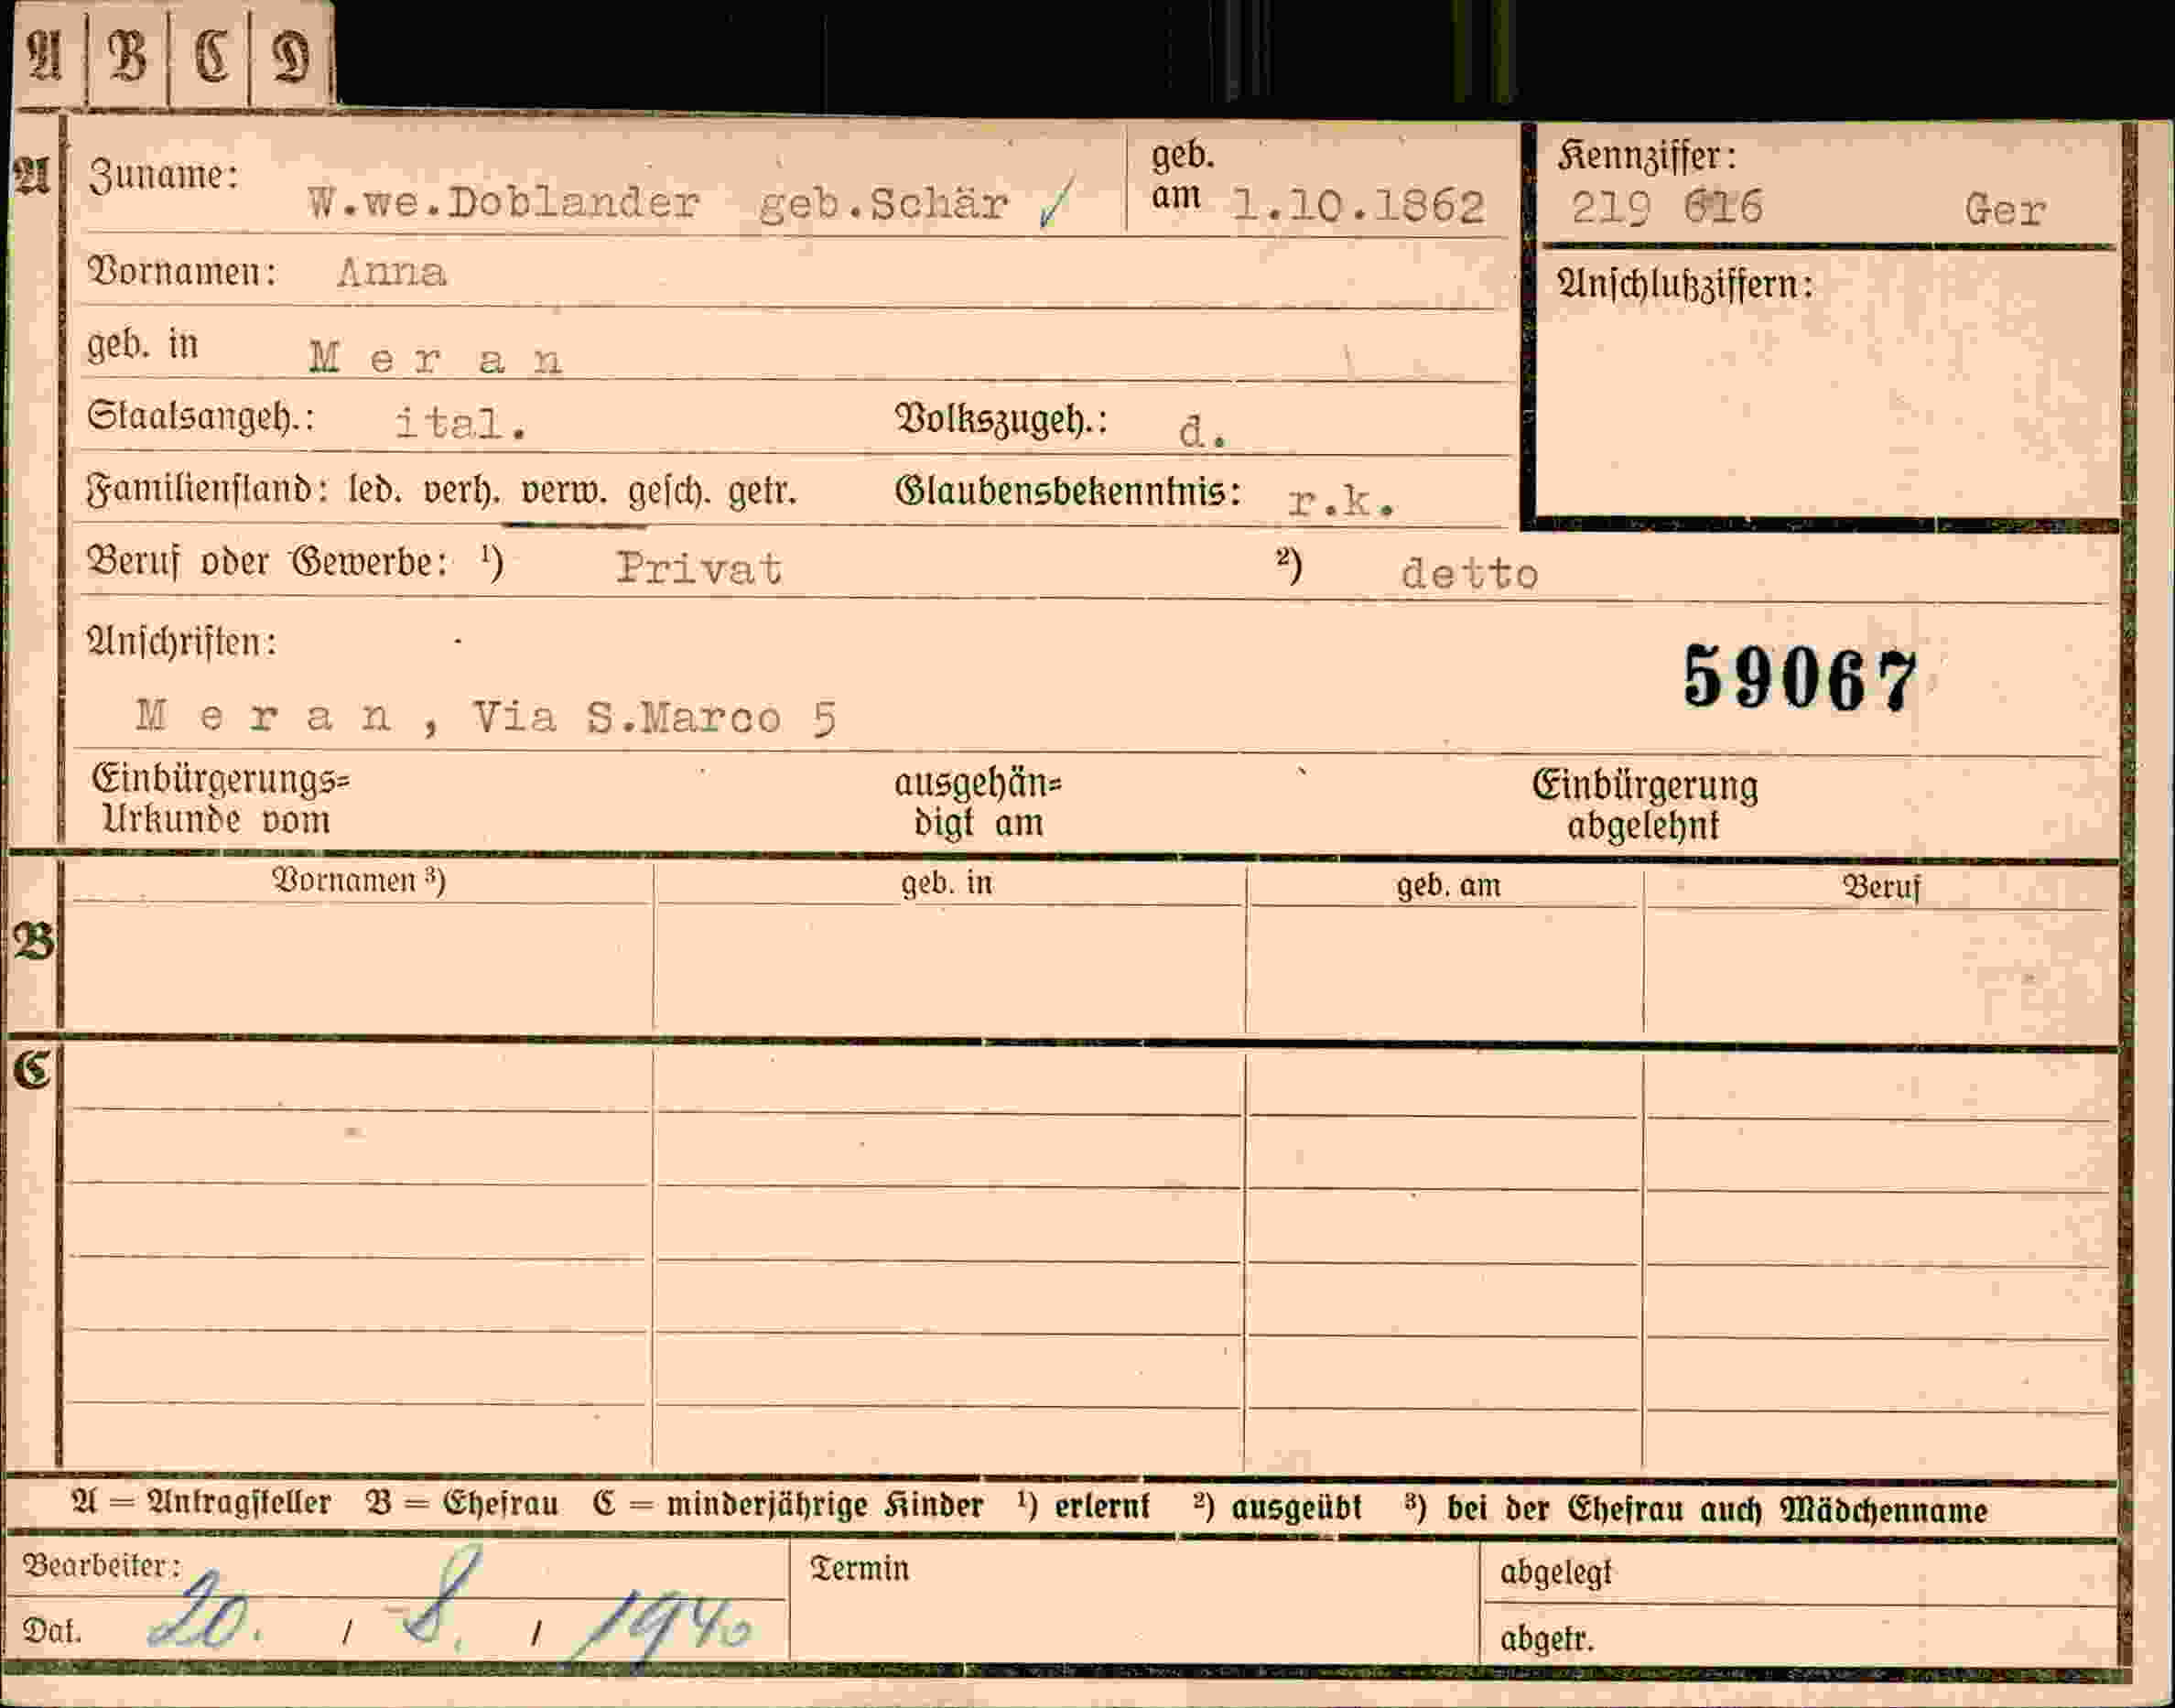 A B C D
A Zuname: W.we.Doblander geb.Schär ✓ geb. am 1.10.1862 Kennziffer: 219 616 Ger
Vornamen: Anna Anschlußziffern:
geb. in M e r a n
Staatsangeh.: ital. Volkszugeh.: d.
Familienstand: led. verh. verw. gesch. getr. Glaubensbekenntnis: r.k.
Beruf oder Gewerbe: ¹) Privat ²) detto
Anschriften:
59067
M e r a n , Via S.Marco 5
Einbürgerungs= ausgehän= Einbürgerung
Urkunde vom digt am abgelehnt
Vornamen ³) geb. in geb. am Beruf
B
C
A = Antragsteller B = Ehefrau C = minderjährige Kinder ¹) erlernt ²) ausgeübt ³) bei der Ehefrau auch Mädchenname
Bearbeiter: Termin abgelegt
Dat. 20. / 8. / 1940 abgetr.